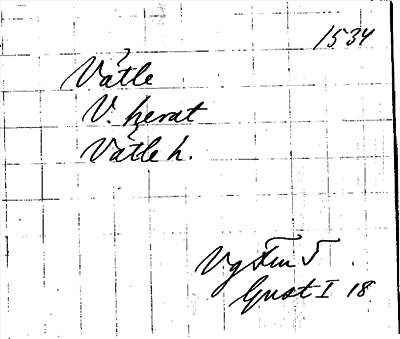 1534
Vätle
V. herat
Vätle h.
Vg Fru 5
Gust I 18